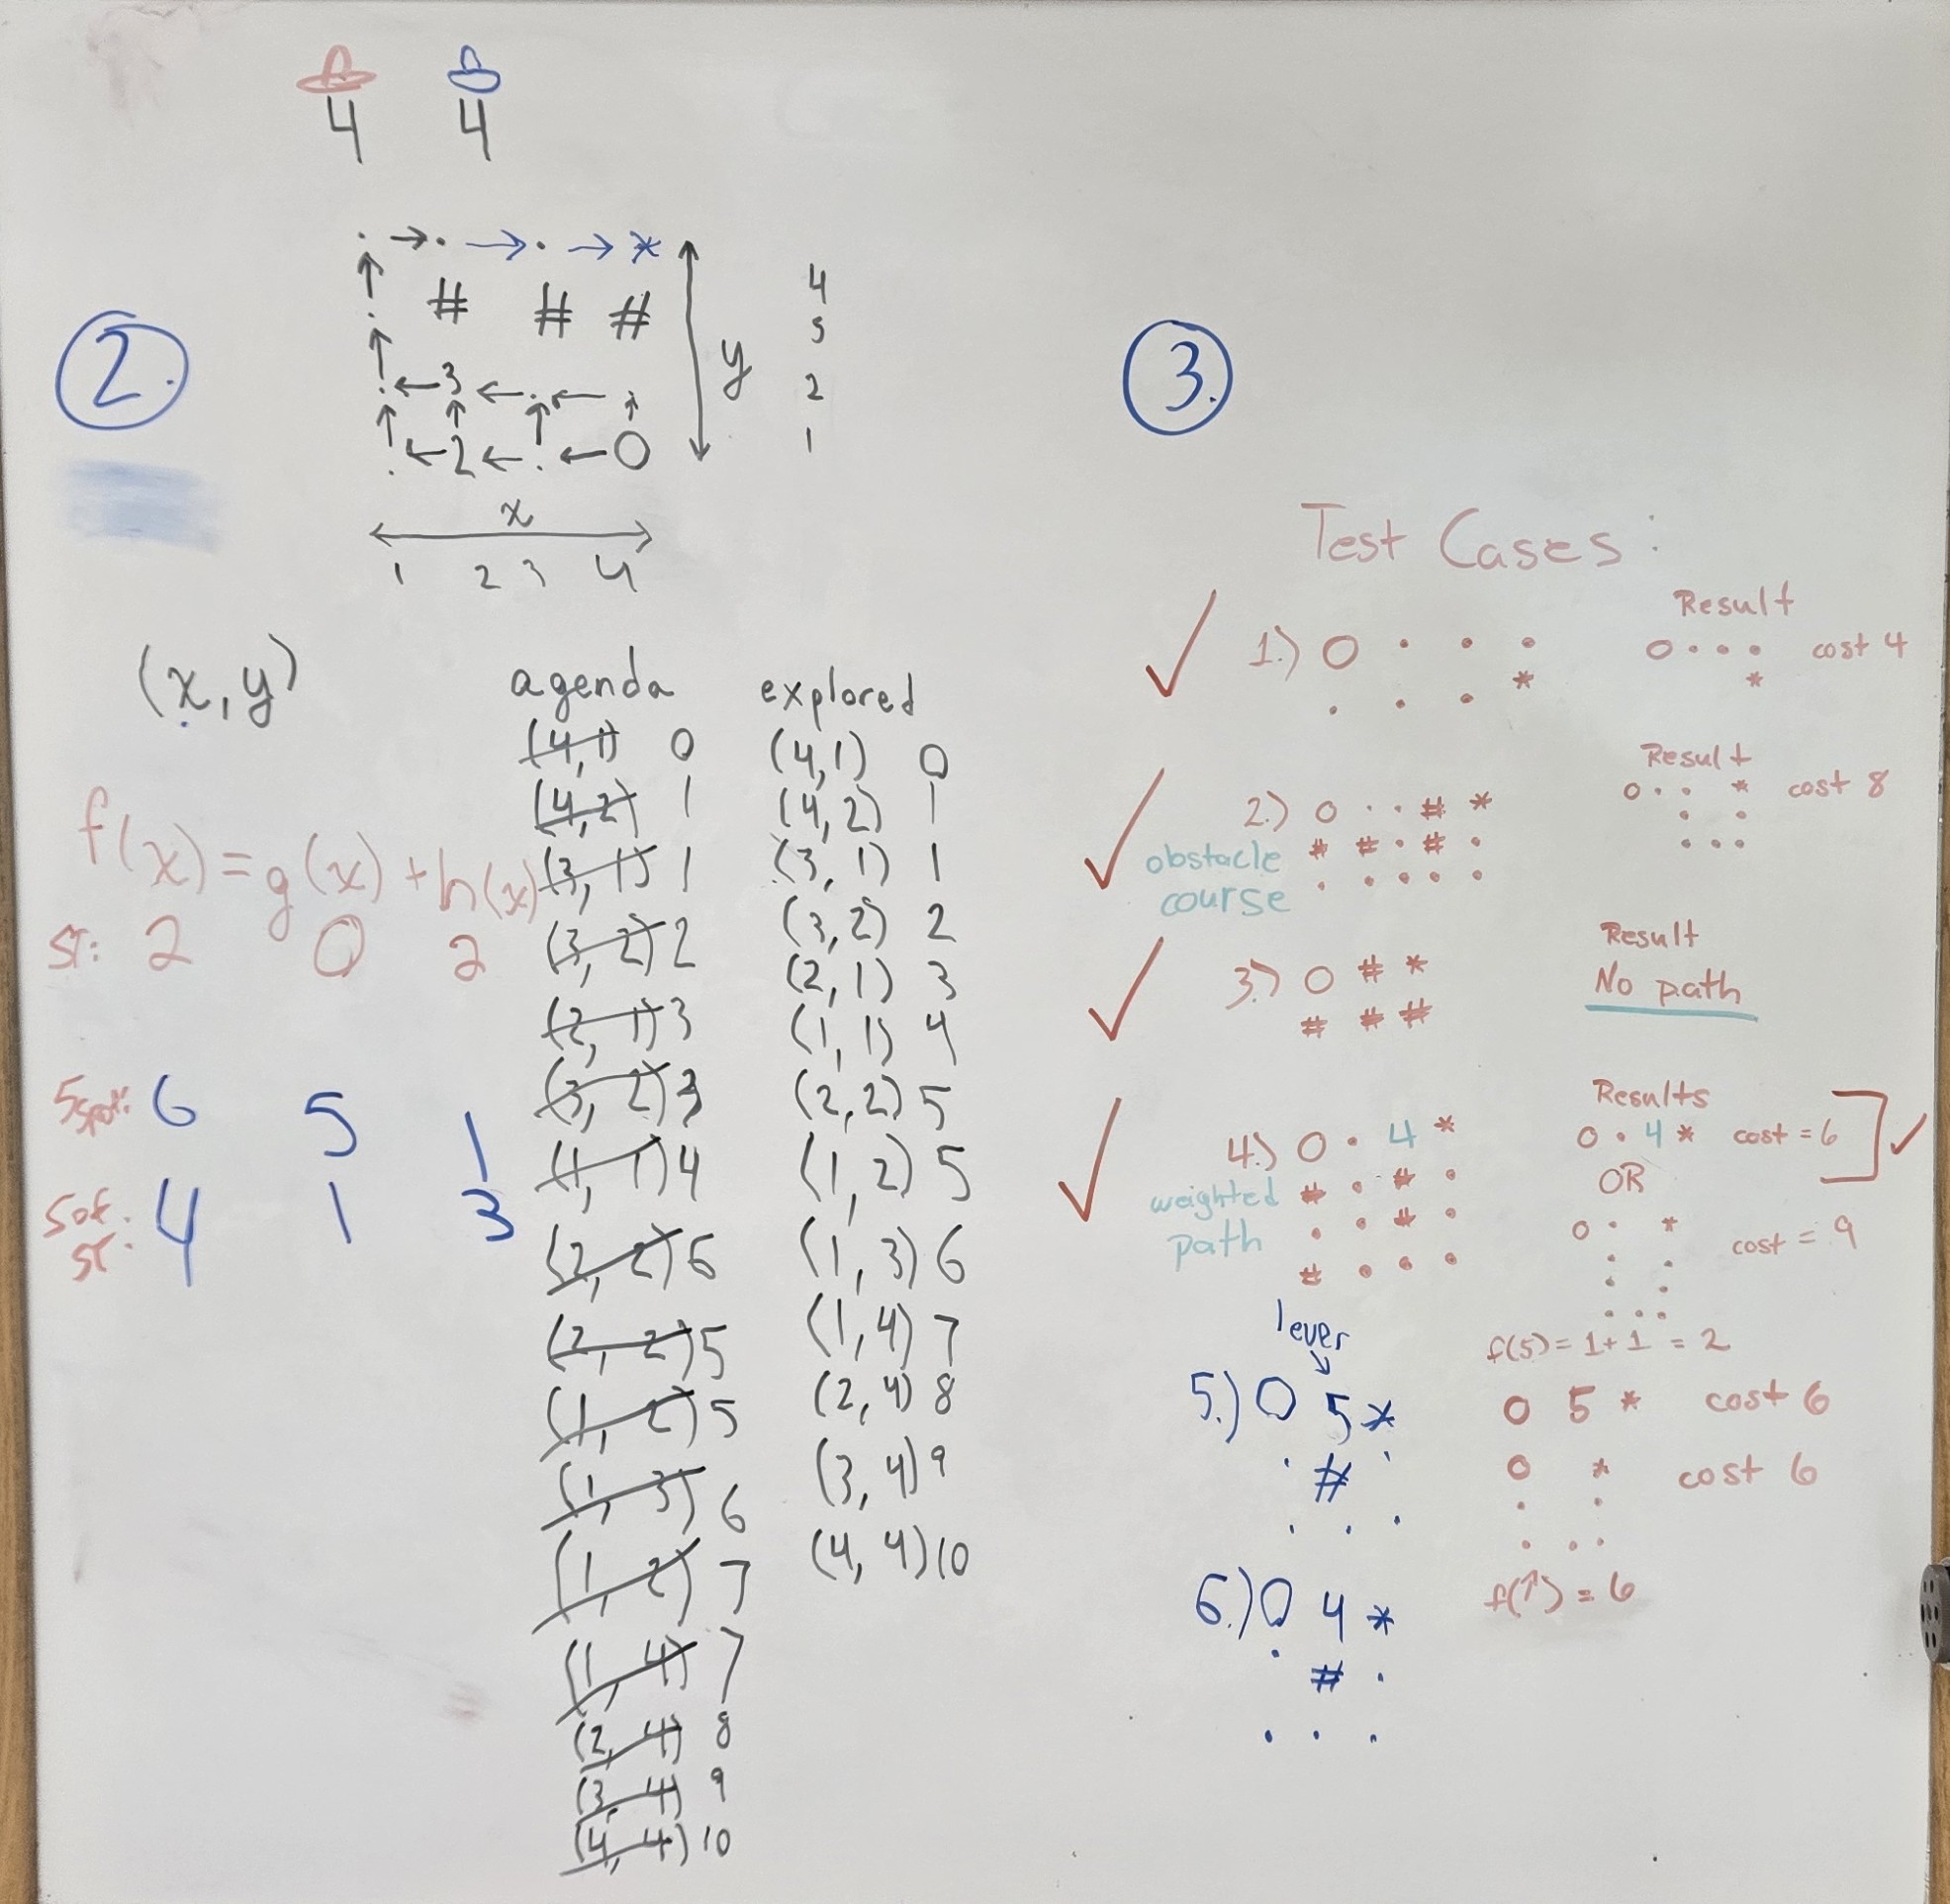 4 4
2.
. → . → . → *
↑ # # #
.
↑
. ← 3 ← . ← .
↑ ↑ ↑ ↑
. ← 2 ← . ← O
y
4
3
2
1
x
1 2 3 4
(x,y)
f(x) = g(x) + h(x)
ST: 2 0 2
5spot: 6 5 1
5 of ST: 4 1 3
agenda
(4,1) 0
(4,2) 1
(3,1) 1
(3,2) 2
(2,1) 3
(3,2) 3
(1,1) 4
(2,2) 6
(2,2) 5
(1,2) 5
(1,3) 6
(1,2) 7
(1,4) 7
(2,4) 8
(3,4) 9
(4,4) 10
explored
(4,1) 0
(4,2) 1
(3,1) 1
(3,2) 2
(2,1) 3
(1,1) 4
(2,2) 5
(1,2) 5
(1,3) 6
(1,4) 7
(2,4) 8
(3,4) 9
(4,4) 10
3.
Test Cases:
Result
✓ 1.) O . . . O . . . cost 4
* *
. . .
Result
✓ 2.) O . . # * O . . * cost 8
obstacle # # . # . . .
course . . . . . . . .
Result
✓ 3.) O # * No path
# # #
Results
✓ 4.) O . 4 * O . 4 * cost = 6 ✓
weighted # . # . OR
path . . # . O . * cost = 9
# . . . . .
. .
. . .
lever
↓
f(5) = 1 + 1 = 2
5.) O 5 * O 5 * cost 6
. # . O * cost 6
. . . . .
. . .
6.) O 4 * f(↑) = 6
. # .
. . .